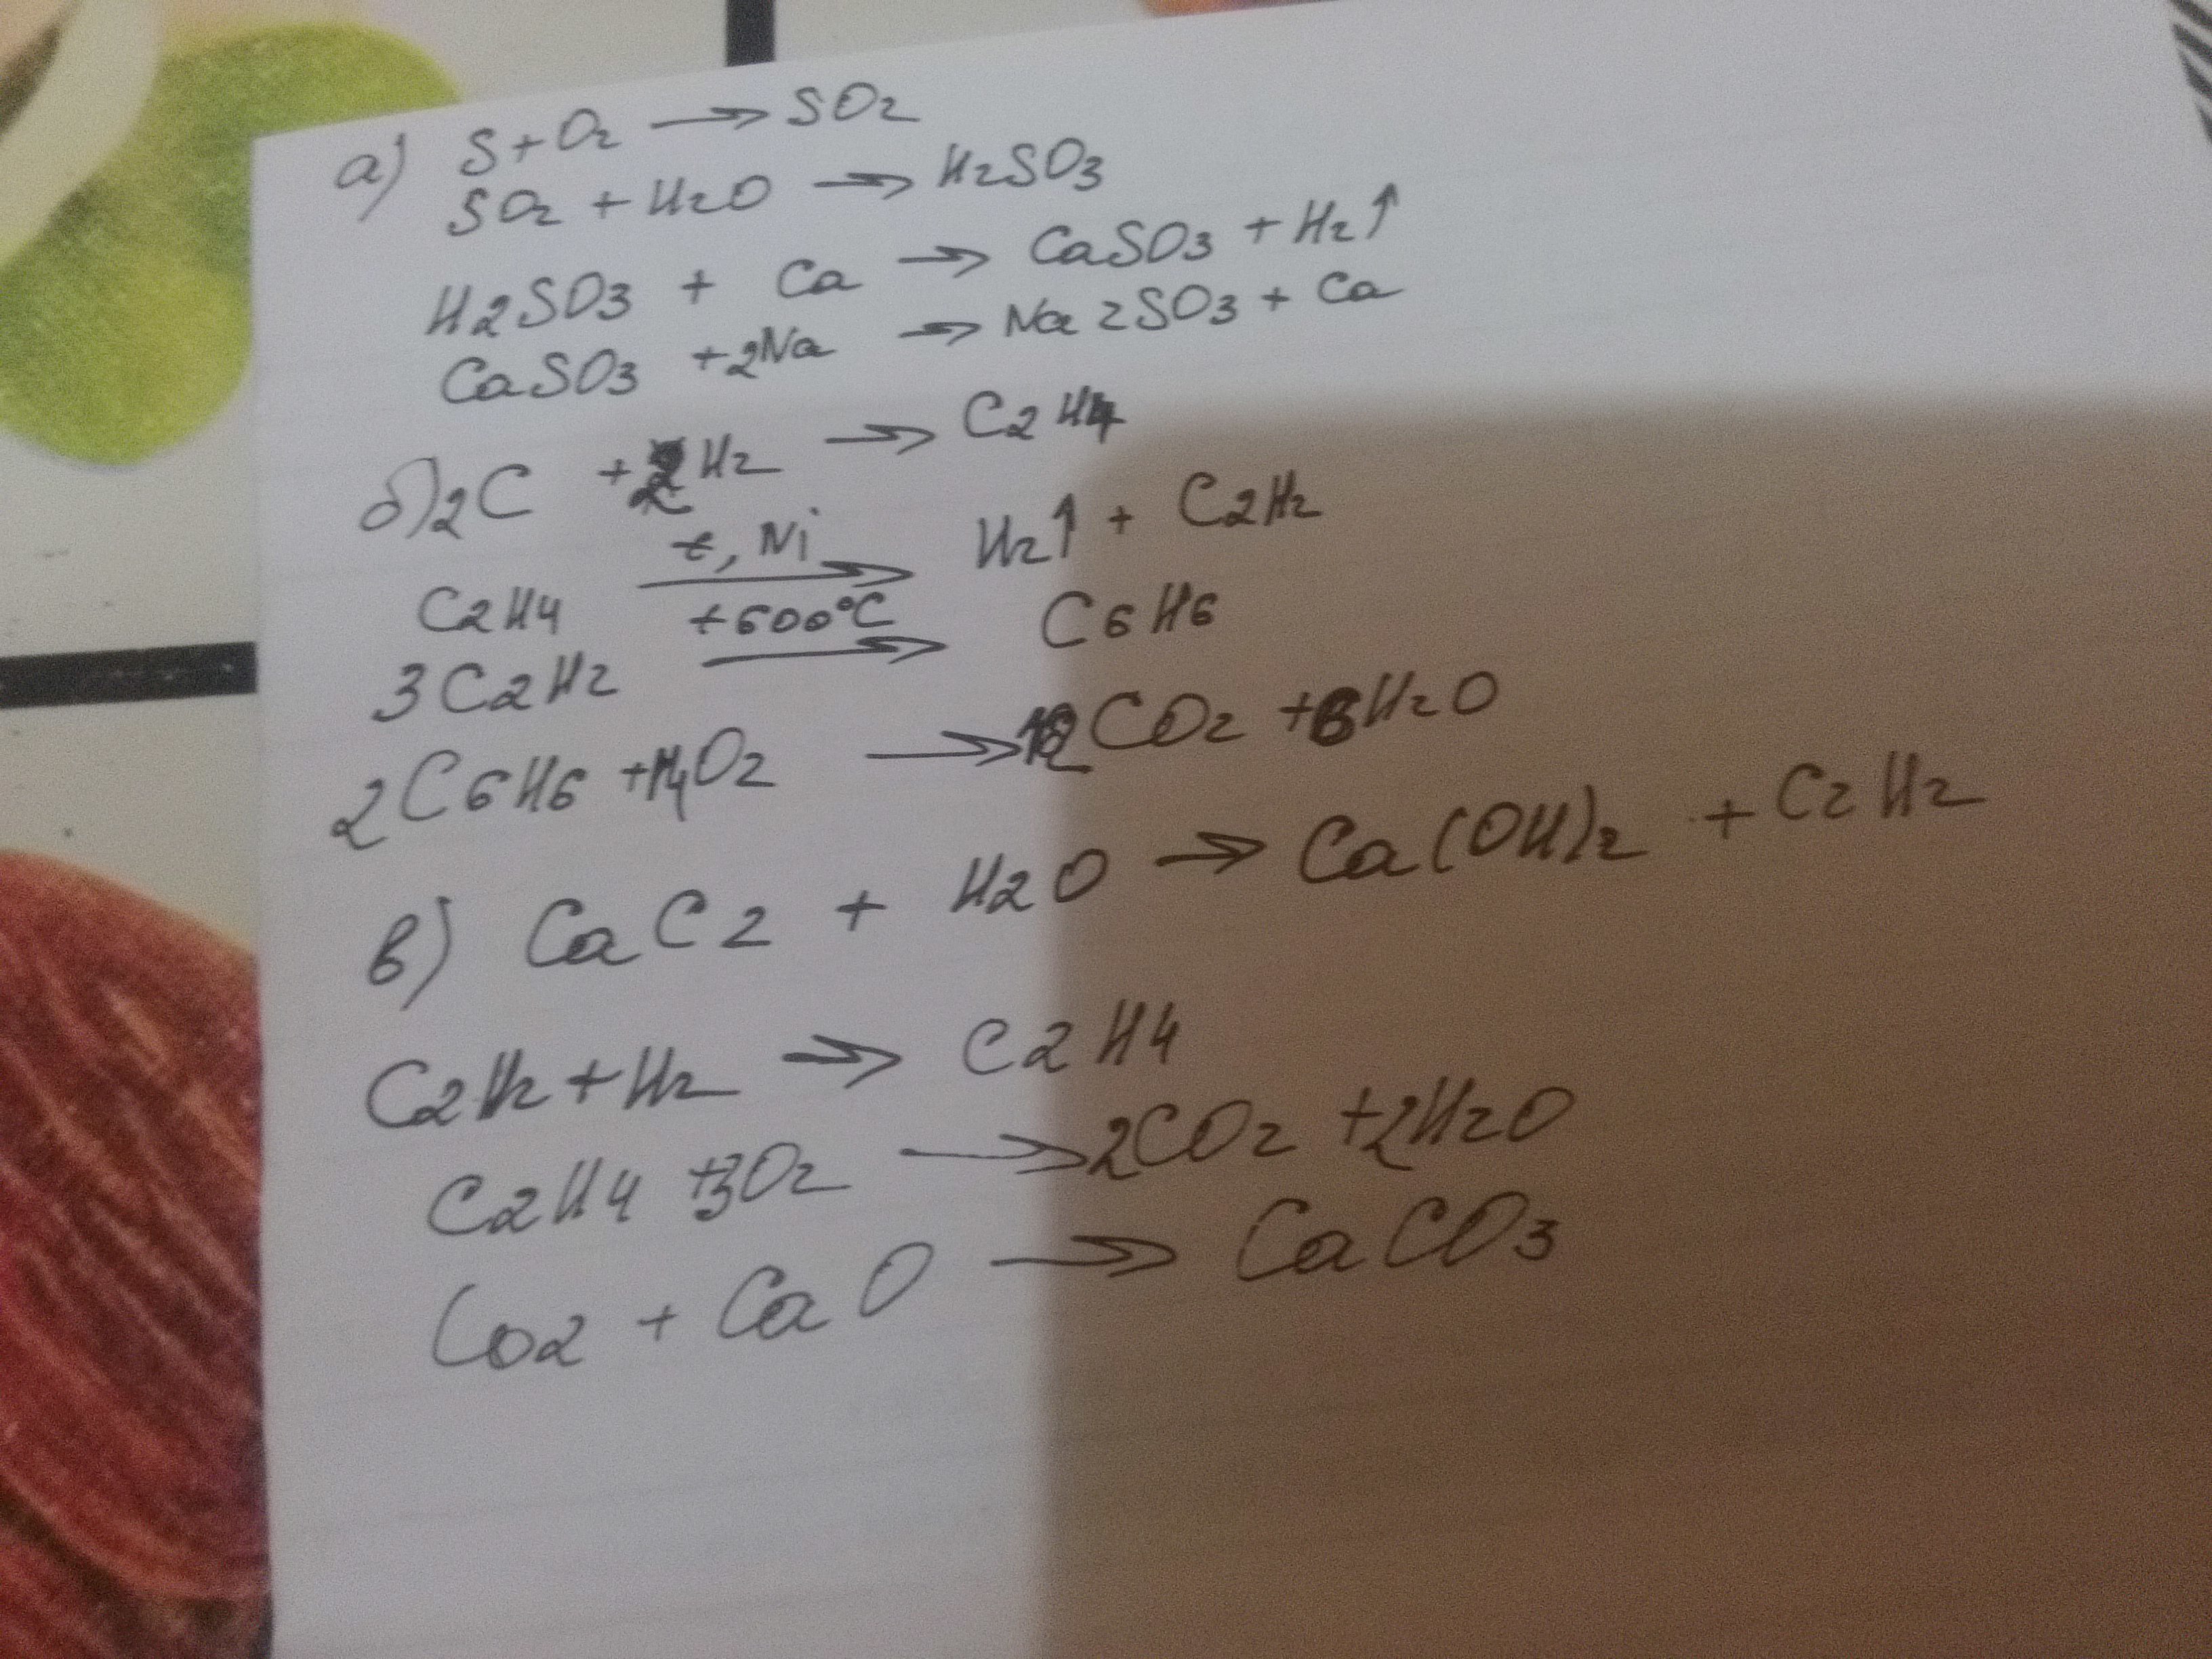 а) S + O2 → SO2
SO2 + H2O → H2SO3
H2SO3 + Ca → CaSO3 + H2↑
CaSO3 + 2Na → Na2SO3 + Ca
б) 2C + 2H2 → C2H4
C2H4 t, Ni → H2↑ + C2H2
3C2H2 +600°C → C6H6
2C6H6 + O2 → 12CO2 + 6H2O
в) CaC2 + H2O → Ca(OH)2 + C2H2
C2H2 + H2 → C2H4
C2H4 + 3O2 → 2CO2 + 2H2O
CO2 + CaO → CaCO3